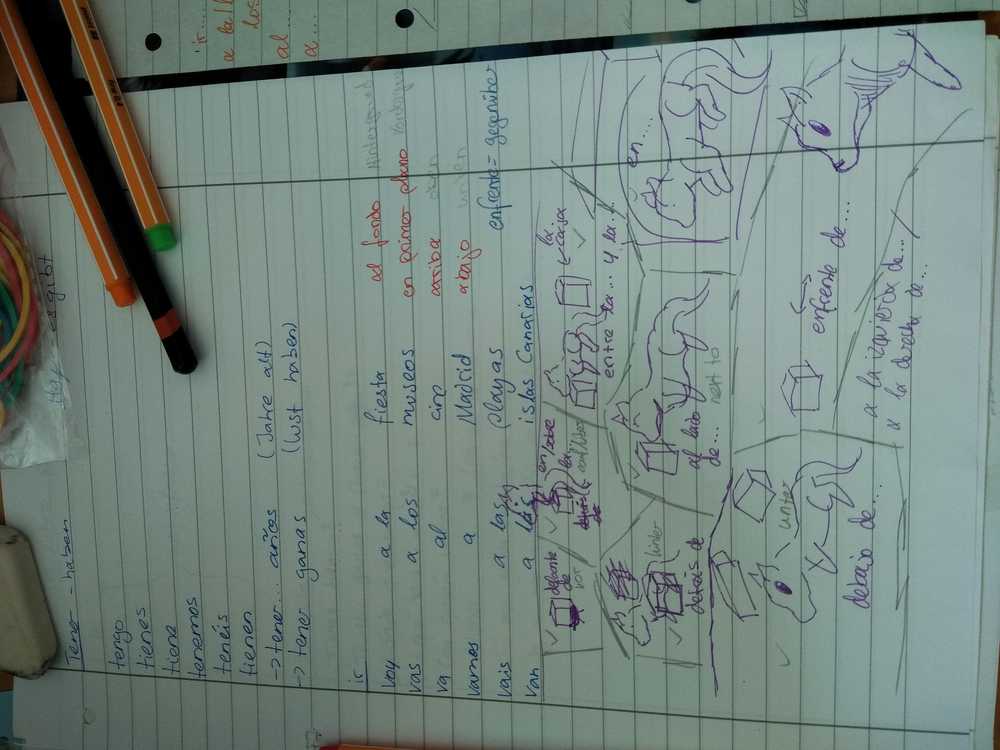 ir...
a la
los
al
a...
Hay es gibt
Tener - haben
tengo
tienes
tiene
tenemos
tenéis
tienen
-> tener... años (Jahre alt)
-> tener ganas (lust haben)
ir
voy a la fiesta al fondo Hintergrund
vas a los museos en primer plano
va al arriba oben
vamos a Madrid abajo unten
vais a las playas enfrente = gegenüber
van a las islas Canarias
delante de
vor
en/sobre
la
auf/über
la casa
entre la... y la...
en....
detrás de
hinter
al lado de...
next to
unter
debajo de...
enfrente de...
a la izquierda de.../
a la derecha de...